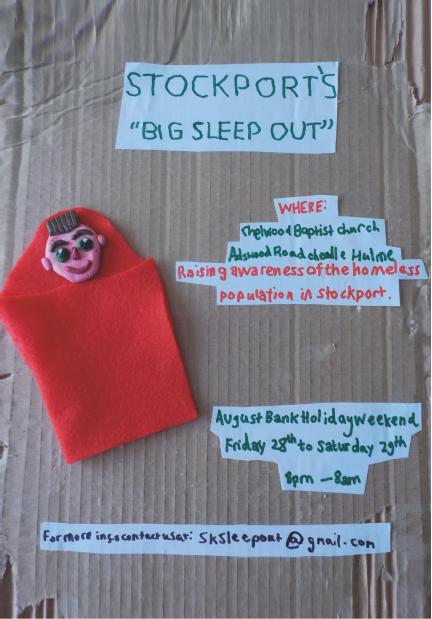 STOCKPORT'S
"BIG SLEEP OUT"
WHERE:
Chelwood Baptist church
Adswood Road cheadle Hulme
Raising awareness of the homeless
population in stockport.
August Bank Holiday weekend
Friday 28th to Saturday 29th
8pm - 8am
For more info contact us at: SKSleepout@gmail.com